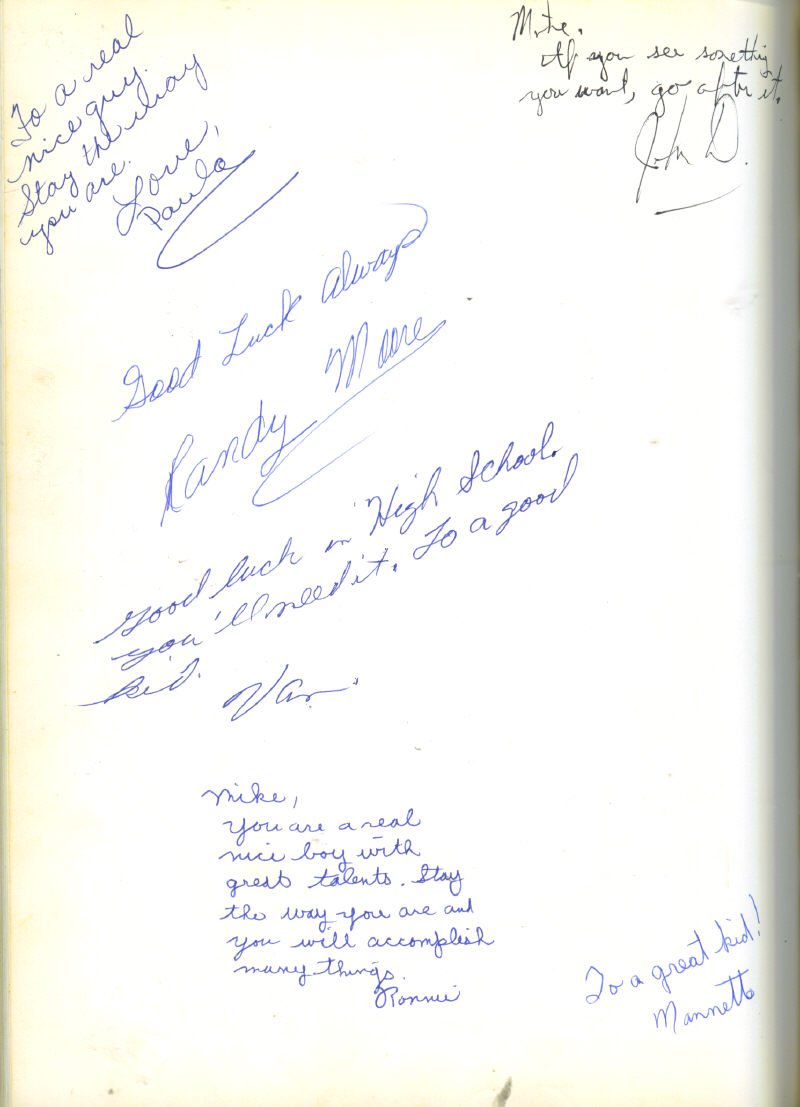 To a real
nice guy.
Stay the way
you are.
Love,
Paula
Mike.
If you see something
you want, go after it.
John D.
Good Luck Always
Randy Moore
Good luck in High School.
you'll need it. To a good
kid.
Van.
Mike,
You are a real
nice boy with
great talents. Stay
the way you are and
you will accomplish
many things.
Ronnie
To a great kid!